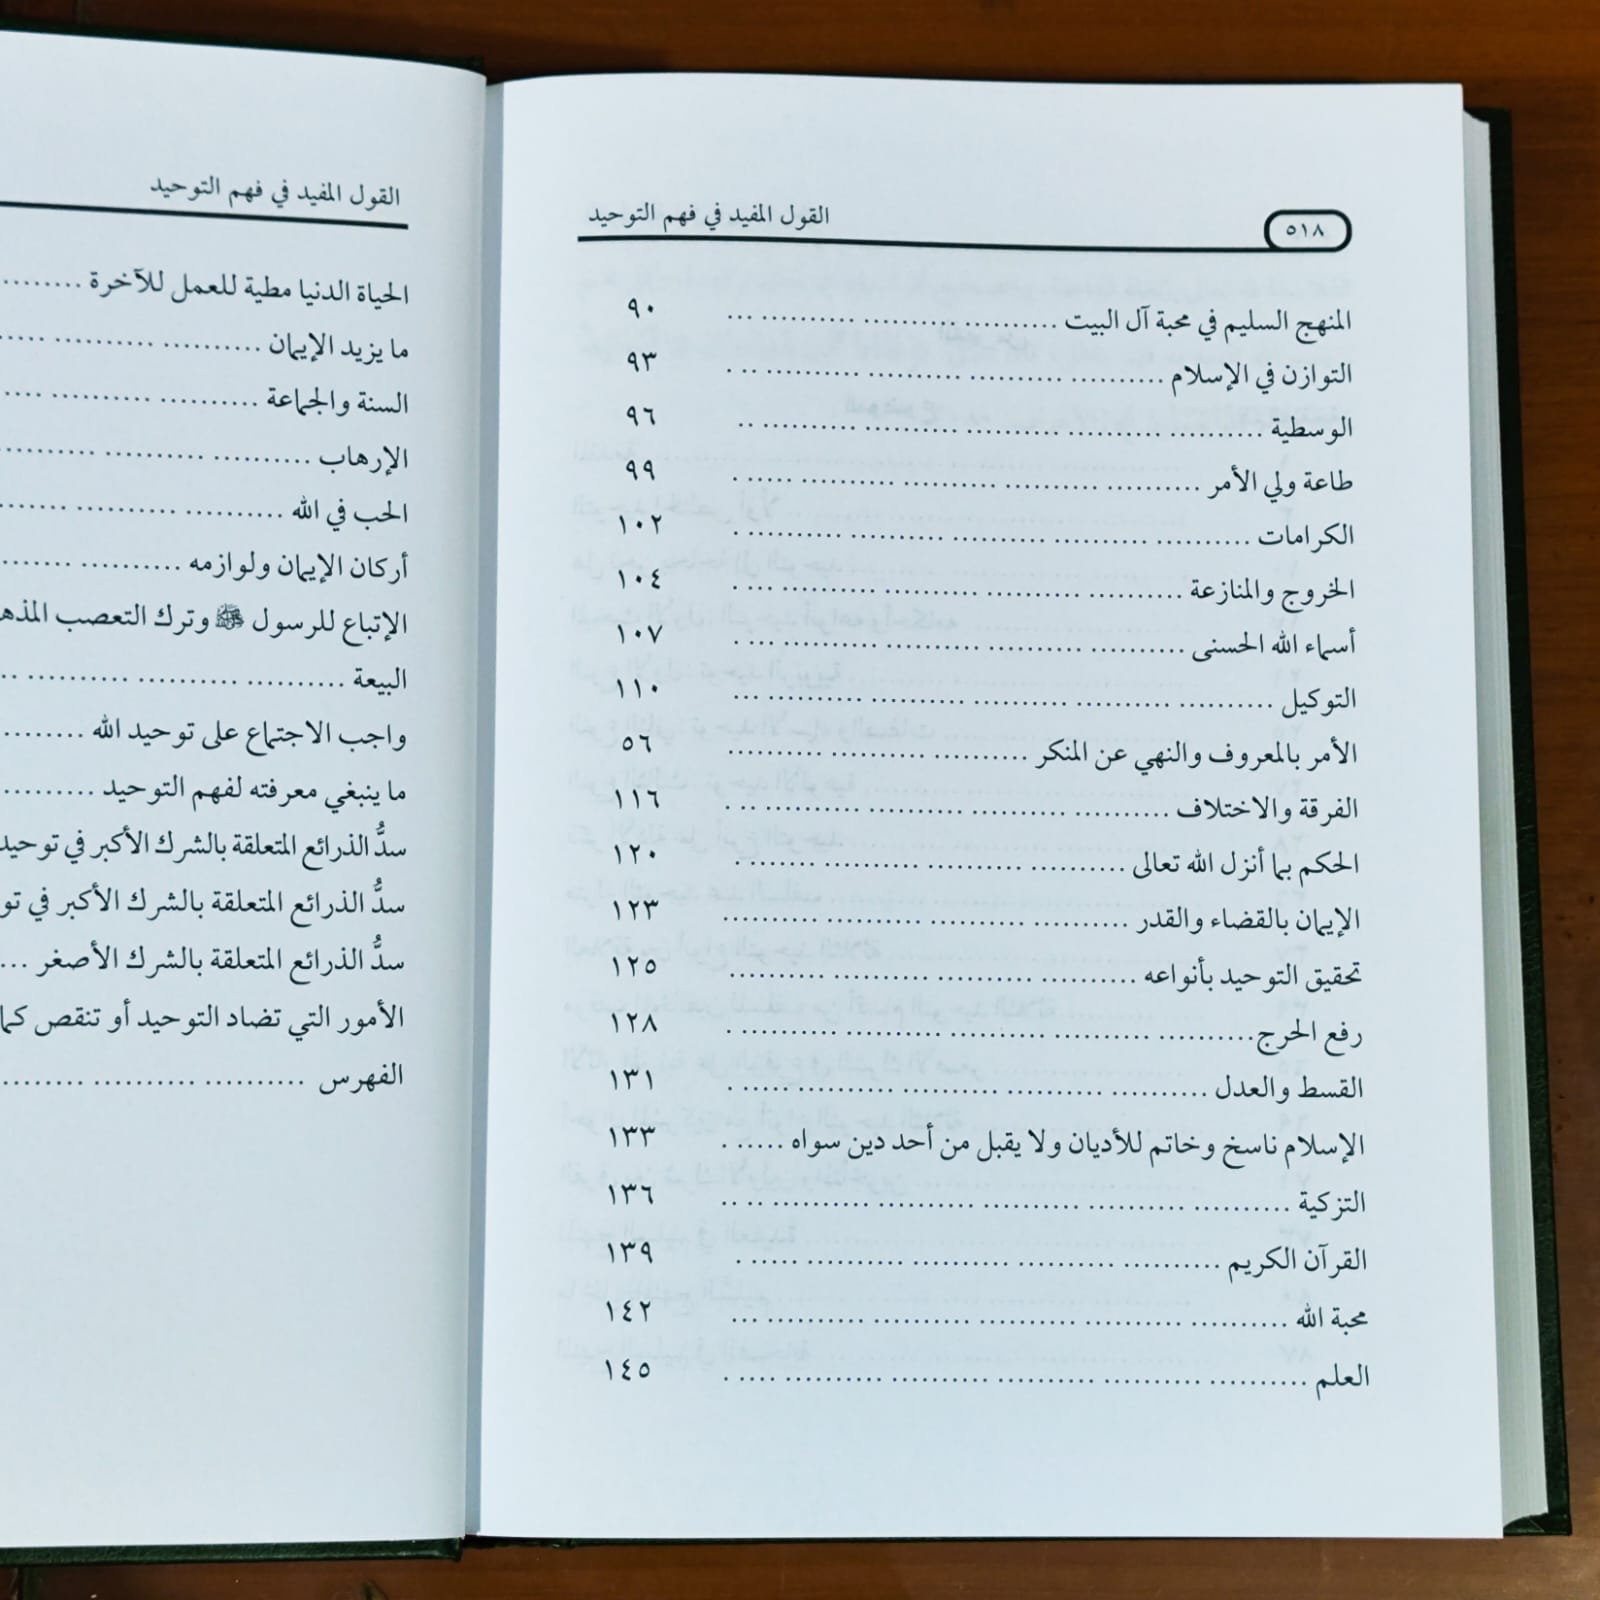 ٥١٨
القول المفيد في فهم التوحيد
المنهج السليم في محبة آل البيت .......... .......... .......... ... ٩٠
التوازن في الإسلام .......... .......... .......... .......... ... . ٩٣
الوسطية .......... .......... .......... .......... .......... .. ٩٦
طاعة ولي الأمر .......... .......... .......... .......... ..... . ٩٩
الكرامات .......... .......... .......... .......... .......... . ١٠٢
الخروج والمنازعة .......... .......... .......... .......... ... ١٠٤
أسماء الله الحسنى .......... .......... .......... .......... ... . ١٠٧
التوكيل .......... .......... .......... .......... .......... ... ١١٠
الأمر بالمعروف والنهي عن المنكر .......... .......... .......... ٥٦
الفرقة والاختلاف .......... .......... .......... .......... ... . ١١٦
الحكم بما أنزل الله تعالى .......... .......... .......... .......... ١٢٠
الإيمان بالقضاء والقدر .......... .......... .......... .......... ١٢٣
تحقيق التوحيد بأنواعه .......... .......... .......... .......... ١٢٥
رفع الحرج .......... .......... .......... .......... .......... . ١٢٨
القسط والعدل .......... .......... .......... .......... ..... . ١٣١
الإسلام ناسخ وخاتم للأديان ولا يقبل من أحد دين سواه ...... . ١٣٣
التزكية .......... .......... .......... .......... .......... ... .. ١٣٦
القرآن الكريم .......... .......... .......... .......... ..... . ١٣٩
محبة الله .......... .......... .......... .......... .......... ... ١٤٢
العلم .......... .......... .......... .......... .......... ..... . ١٤٥
القول المفيد في فهم التوحيد
الحياة الدنيا مطية للعمل للآخرة ........
ما يزيد الإيمان .......... .......... .....
السنة والجماعة .......... .......... ....
الإرهاب .......... .......... ..........
الحب في الله .......... .......... .......
أركان الإيمان ولوازمه .......... .......
الإتباع للرسول ﷺ وترك التعصب
البيعة .......... .......... .......... ..
واجب الاجتماع على توحيد الله ........
ما ينبغي معرفته لفهم التوحيد .........
سدُّ الذرائع المتعلقة بالشرك الأكبر في توحيد
سدُّ الذرائع المتعلقة بالشرك الأكبر في
سدُّ الذرائع المتعلقة بالشرك الأصغر ...
الأمور التي تضاد التوحيد أو تنقص
الفهرس .......... .......... ..........